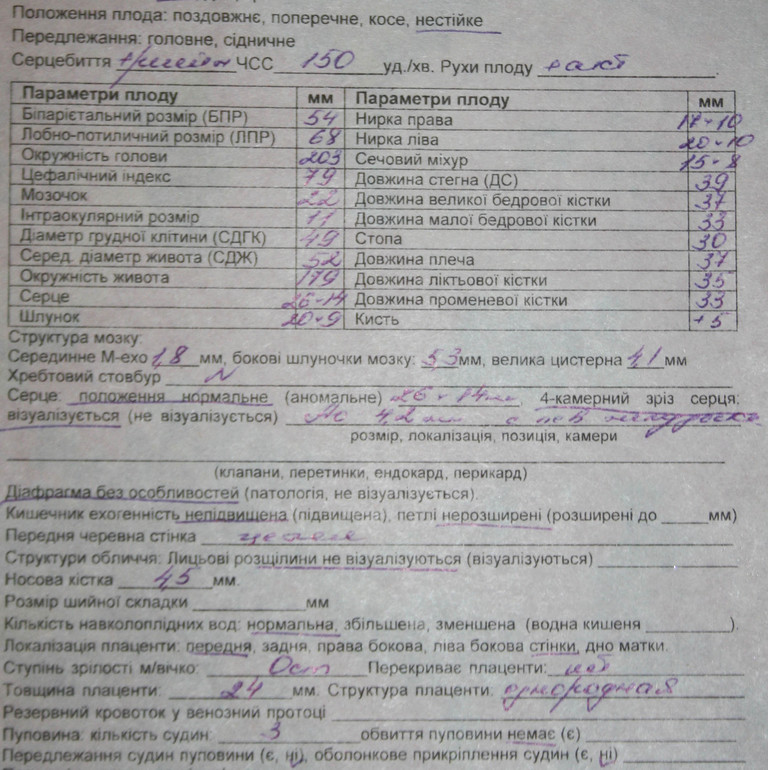 Положення плода: поздовжнє, поперечне, косе, нестійке
Передлежання: головне, сідничне
Серцебиття ЧСС 150 уд./хв. Рухи плоду + акт.
Параметри плоду мм Параметри плоду мм
Біпарієтальний розмір (БПР) 54 Нирка права 17×10
Лобно-потиличний розмір (ЛПР) 68 Нирка ліва 20×10
Окружність голови 203 Сечовий міхур 15×8
Цефалічний індекс 79 Довжина стегна (ДС) 39
Мозочок 22 Довжина великої бедрової кістки 37
Інтраокулярний розмір 11 Довжина малої бедрової кістки 33
Діаметр грудної клітини (СДГК) 49 Стопа 30
Серед. діаметр живота (СДЖ) 52 Довжина плеча 37
Окружність живота 179 Довжина ліктьової кістки 35
Серце 26×14 Довжина променевої кістки 33
Шлунок 20×9 Кисть +5
Структура мозку:
Серединне М-ехо 1,8 мм, бокові шлуночки мозку: 5,3 мм, велика цистерна 4,1 мм
Хребтовий стовбур N
Серце: положення нормальне (аномальне) 26×14 мм, 4-камерний зріз серця:
візуалізується (не візуалізується) Ао 4,2 мм
розмір, локалізація, позиція, камери
(клапани, перетинки, ендокард, перикард)
Діафрагма без особливостей (патологія, не візуалізується).
Кишечник ехогенність непідвищена (підвищена), петлі нерозширені (розширені до мм)
Передня черевна стінка целая
Структури обличчя: Лицьові розщілини не візуалізуються (візуалізуються)
Носова кістка 4,5 мм.
Розмір шийної складки мм
Кількість навколоплідних вод: нормальна, збільшена, зменшена (водна кишеня ).
Локалізація плаценти: передня, задня, права бокова, ліва бокова стінки, дно матки.
Ступінь зрілості м/вічко: 0 ст Перекриває плаценти: нет
Товщина плаценти: 24 мм. Структура плаценти: однородная
Резервний кровоток у венозній протоці
Пуповина: кількість судин: 3 обвиття пуповини немає (є)
Передлежання судин пуповини (є, ні), оболонкове прикріплення судин (є, ні)